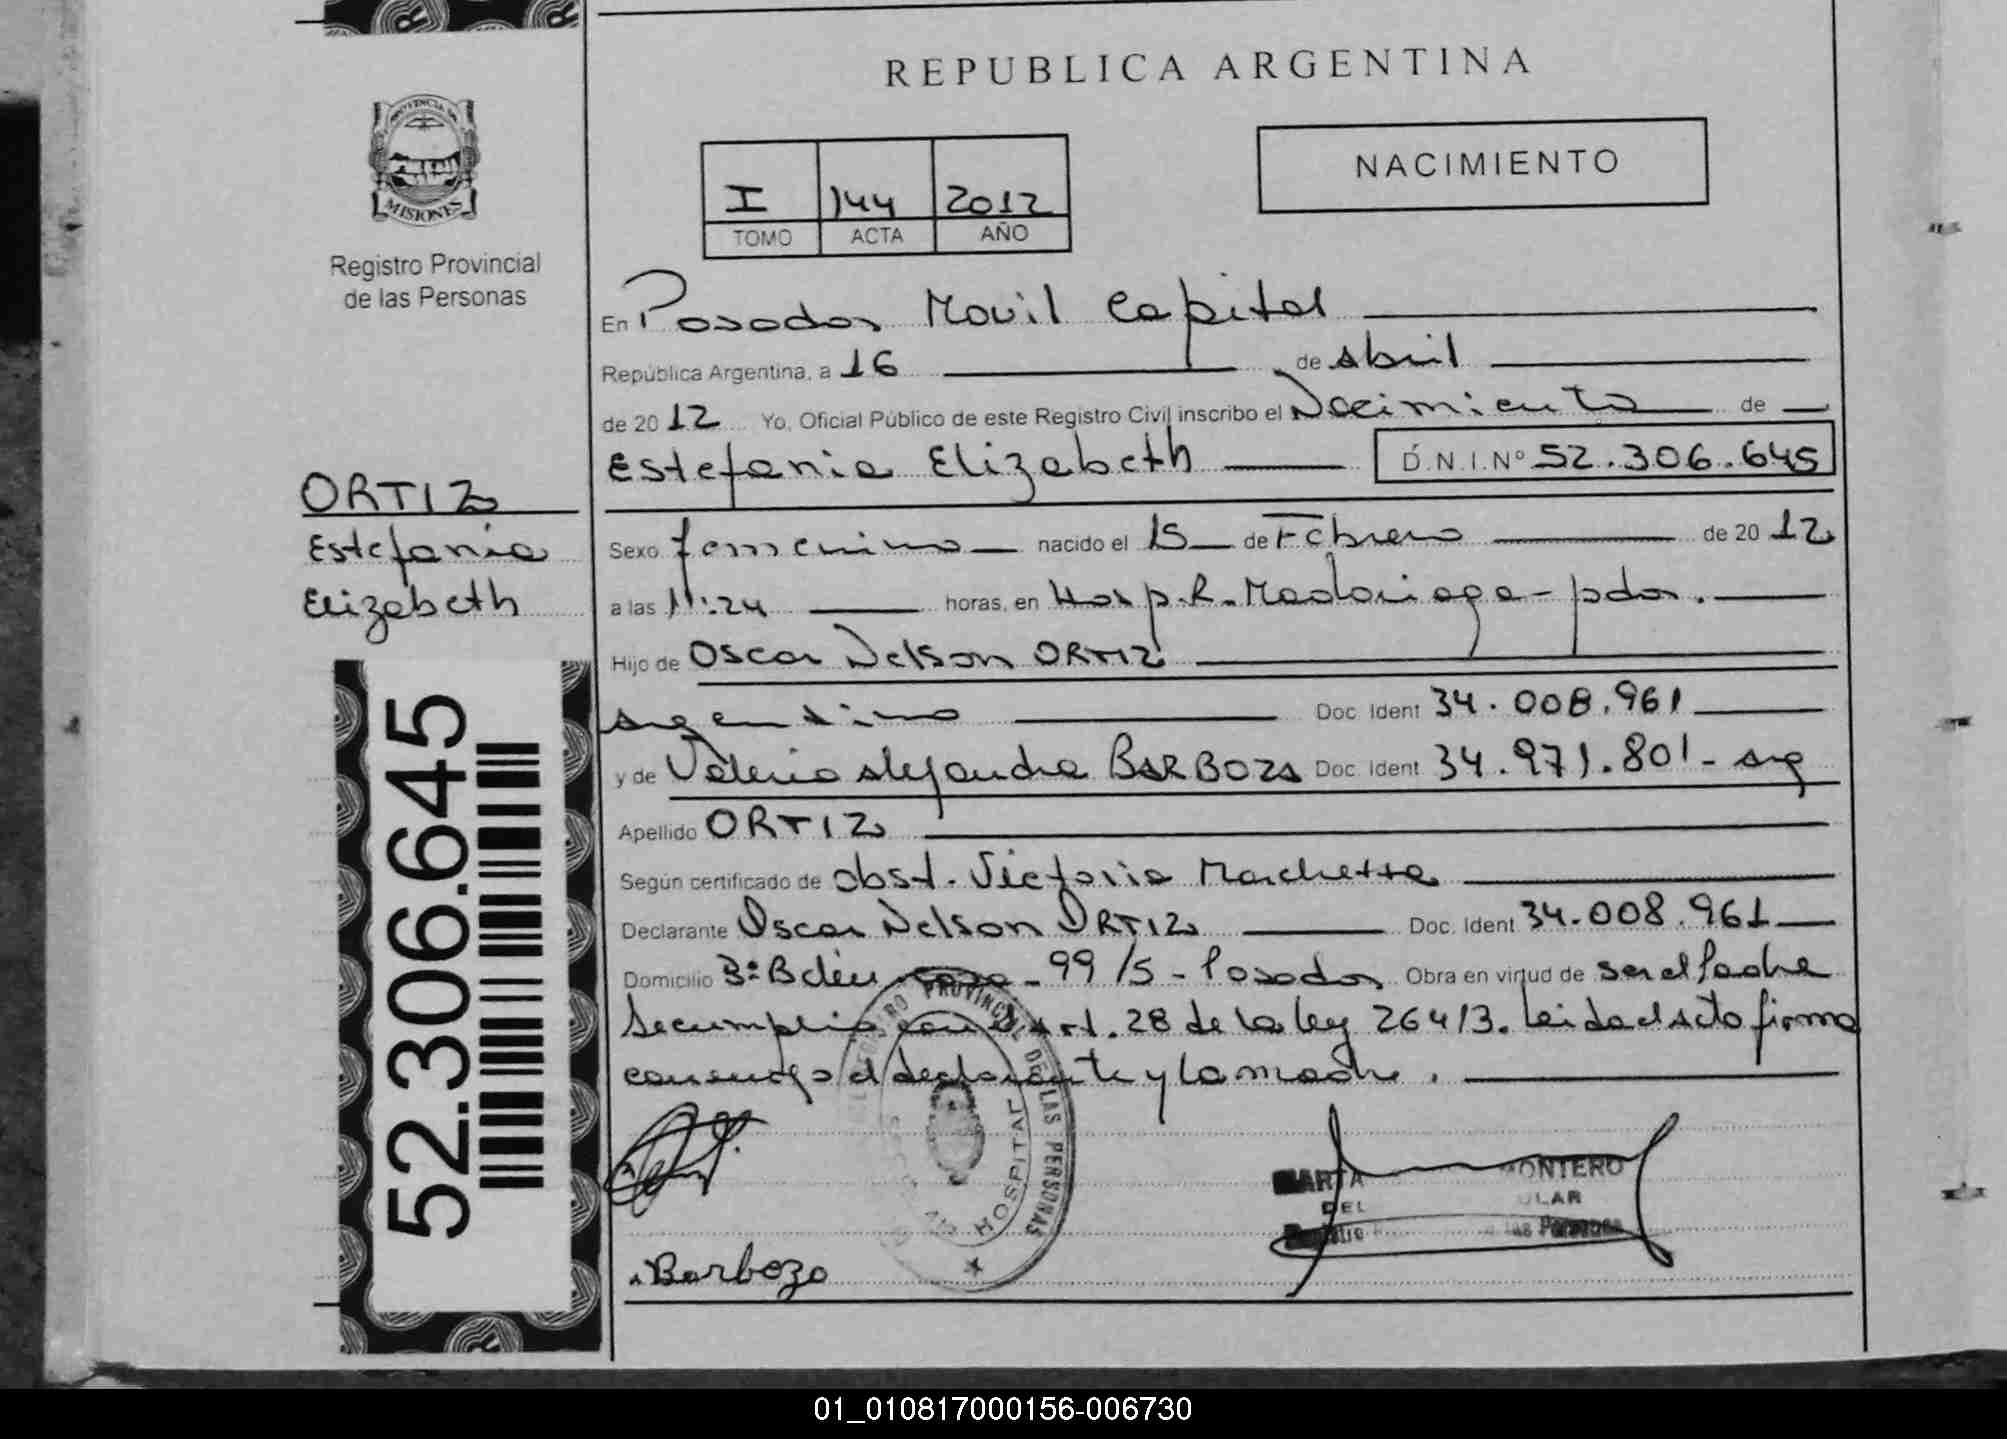 REPUBLICA ARGENTINA
PROVINCIA DE
MISIONES
Registro Provincial
de las Personas
I 144 2012
TOMO ACTA AÑO
NACIMIENTO
En Posadas Movil Capital
República Argentina, a 16 de abril
de 2012 Yo, Oficial Público de este Registro Civil inscribo el Nacimiento de
Estefania Elizabeth D.N.I.Nº 52.306.645
ORTIZ
Estefania
Elizabeth
Sexo femenino nacido el 15 de Febrero de 2012
a las 11:24 horas, en Hosp. R. Madariaga - pdas.
Hijo de Oscar Nelson ORTIZ
argentino Doc. Ident 34.008.961
y de Valeria Alejandra BARBOZA Doc. Ident 34.971.801 - arg
Apellido ORTIZ
Según certificado de obst. Victoria Marchetta
Declarante Oscar Nelson ORTIZ Doc. Ident 34.008.961
Domicilio Bº Belén casa 99/5 - Posadas Obra en virtud de ser el Padre
Se cumplio con el art. 28 de la ley 26413. Leida el acta firma
conmigo el declarante y la madre.
52.306.645
REGISTRO PROVINCIAL DE LAS PERSONAS
HOSPITAL
MARTA MONTERO
DEL
Registro las Personas
Barboza
01_010817000156-006730